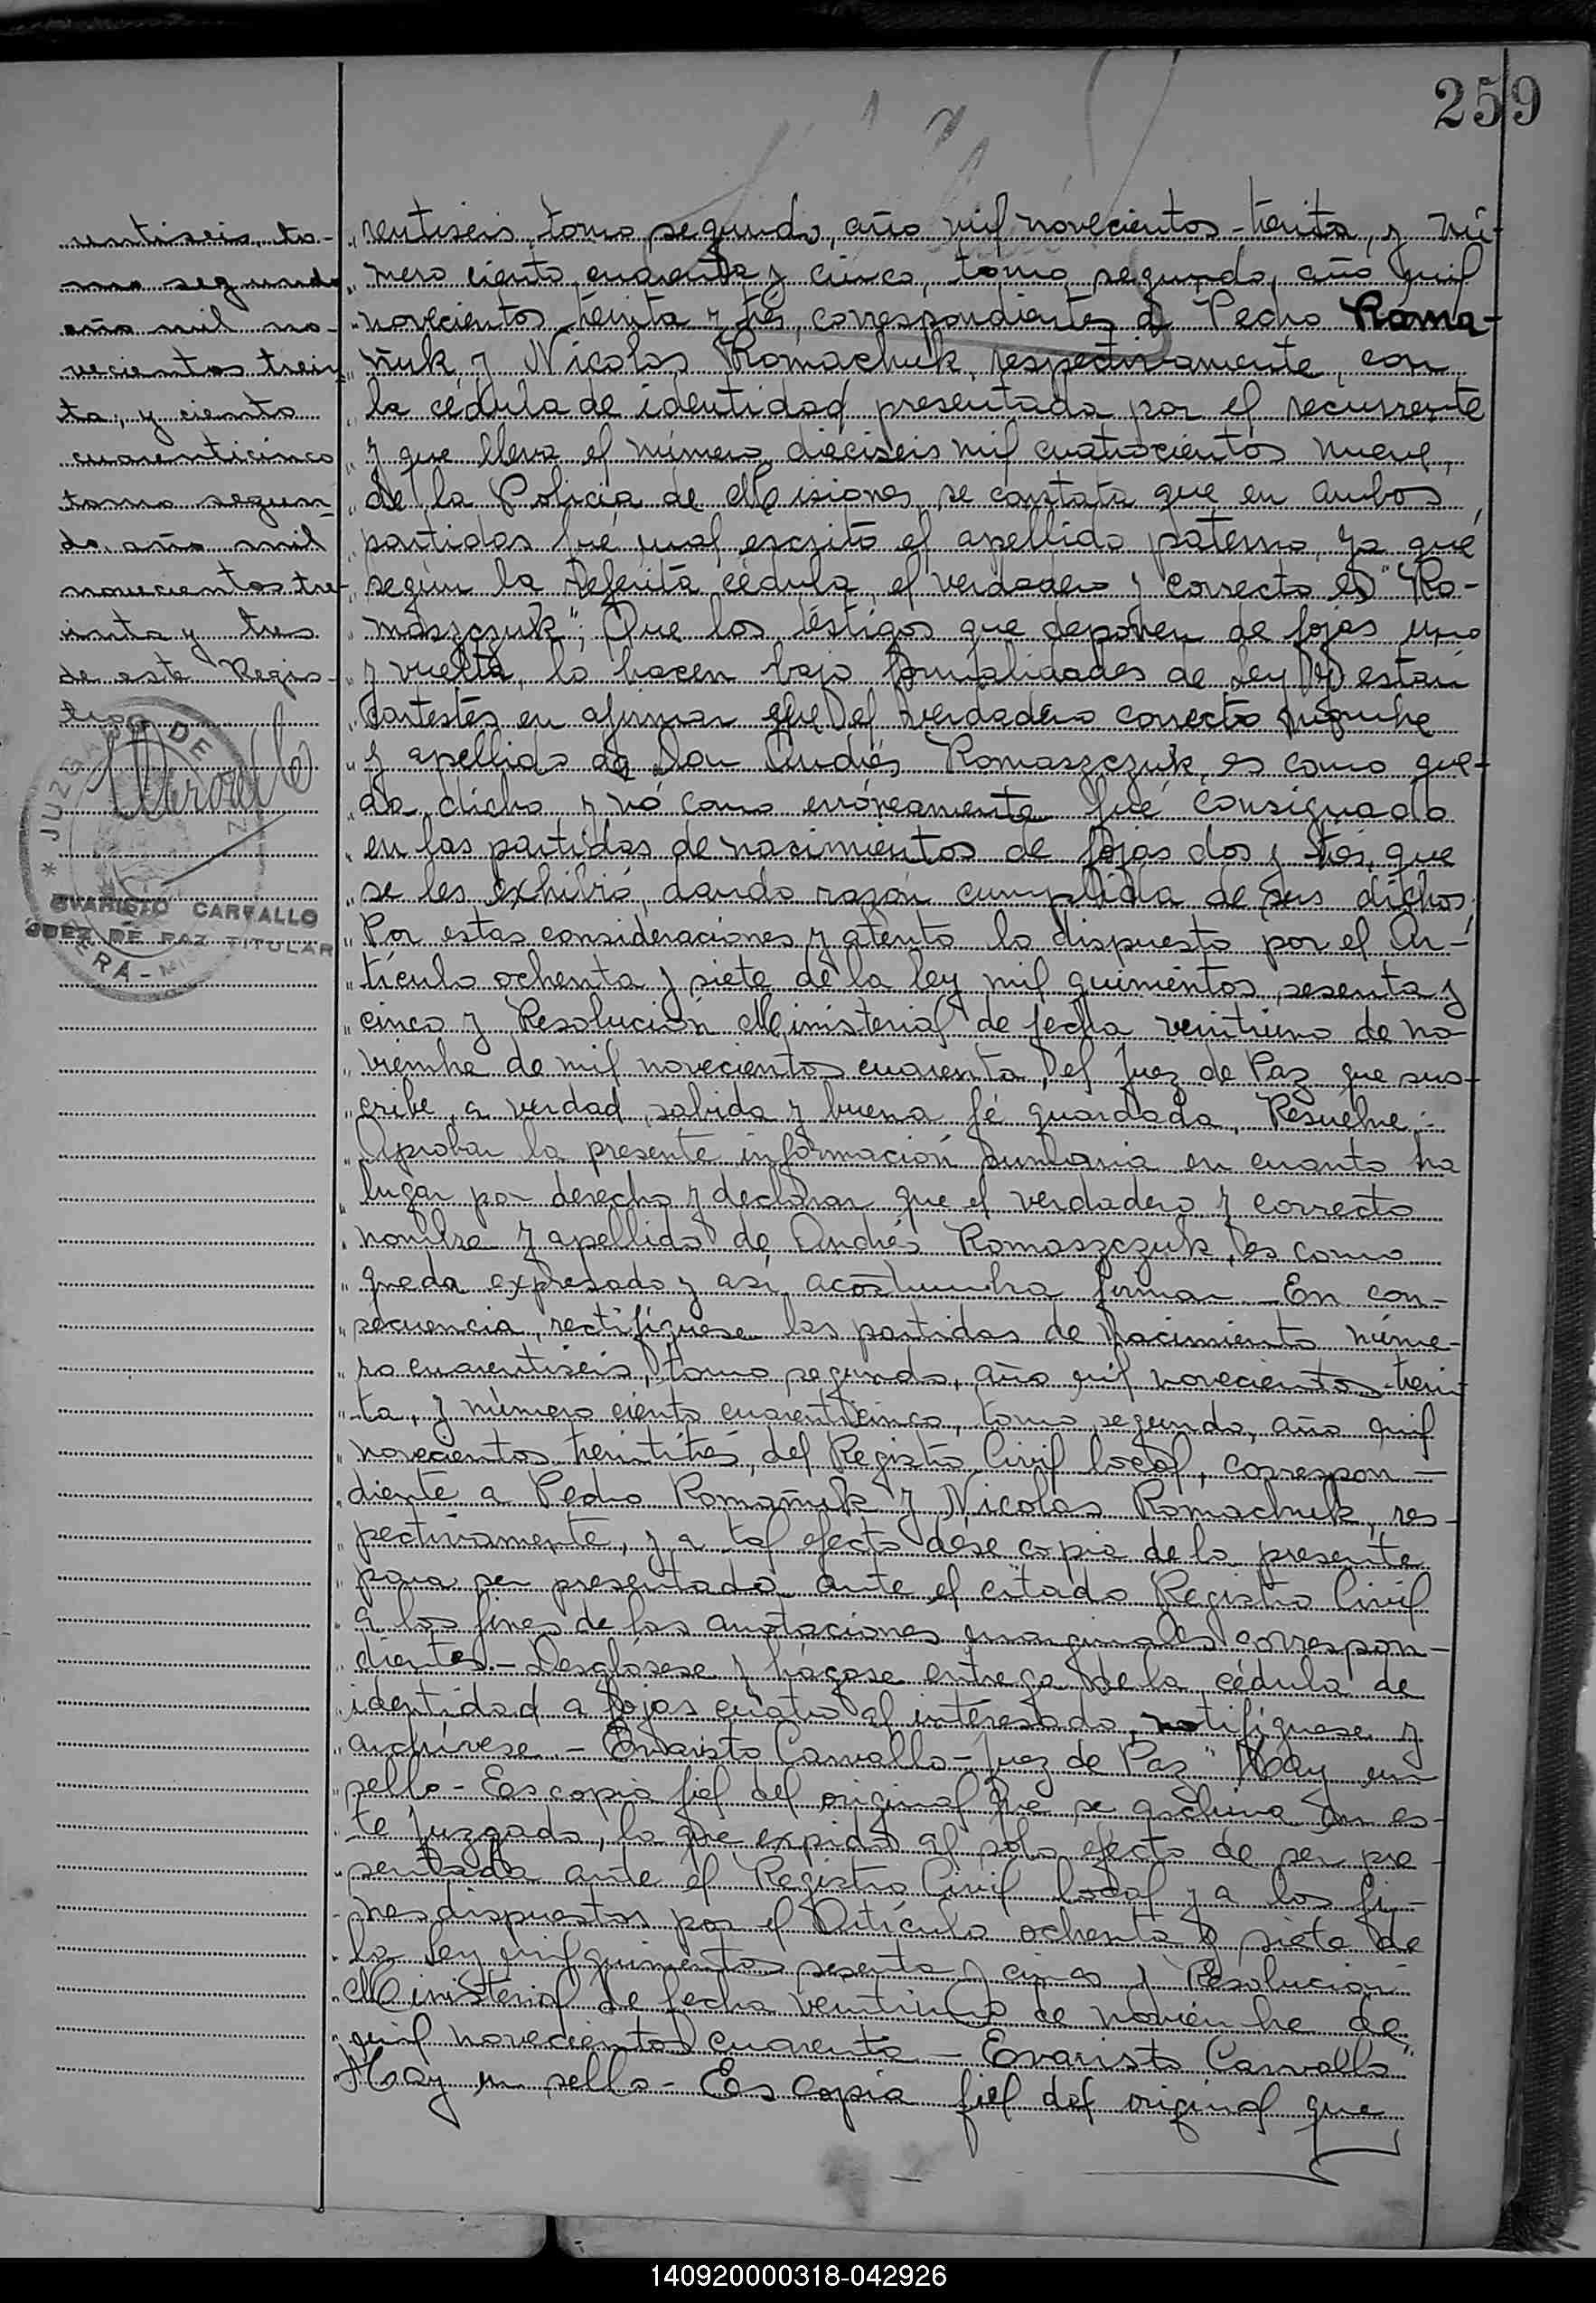 259
rentiseis, to-
mo segundo
año mil no-
vecientos trein
ta, y ciento
cuarenticinco
tomo segun-
do, año mil
novecientos tre-
inta y tres
de este Regis-
tro
JUZGADO DE
EVARISTO CARVALLO
JUEZ DE PAZ TITULAR
AZARA - MIS
"rentiseis, tomo segundo, año mil novecientos treinta, y nú-
"mero ciento cuarenta y cinco, tomo segundo, año mil
"novecientos treinta y tres, correspondientes a Pedro Roma-
"ñuk y Nicolas Romachuk, respectivamente, con
"la cédula de identidad presentada por el recurrente
"y que lleva el número dieciseis mil cuatrocientos nueve,
"de la Policía de Misiones, se constata que en ambos
"partidas fué mal escrito el apellido paterno, ya que
"según la referita cédula, el verdadero y correcto es "Ro-
"maszczuk"; Que los testigos que deponen de fojas uno
"y vuelta, lo hacen bajo formalidades de ley y están
"contestes en afirmar que el verdadero correcto nombre
"y apellido de Don Andrés Romaszczuk, es como que-
"da dicho y nó como erróneamente fué consignado
"en las partidas de nacimientos de fojas dos y tres, que
"se les exhibió, dando razón cumplida de sus dichos,
"Por estas consideraciones y atento lo dispuesto por el Ar-
"tículo ochenta y siete de la ley mil quinientos sesenta y
"cinco y Resolución Ministerial de fecha veintiuno de no-
"viembre de mil novecientos cuarenta, el Juez de Paz que sus-
"cribe, a verdad sabida y buena fé guardada, Resuelve:
"Aprobar la presente información sumaria en cuanto ha
"lugar por derecho y declarar que el verdadero y correcto
"nombre y apellido de Andrés Romaszczuk, es como
"queda expresado y así acostumbra firmar - En con-
"secuencia, rectifíquese las partidas de nacimiento núme-
"ro cuarentiseis, tomo segundo, año mil novecientos trein-
"ta, y número ciento cuarenticinco, tomo segundo, año mil
"novecientos treintitrés, del Registro Civil local, correspon-
"diente a Pedro Romañuk y Nicolas Romachuk, res-
"pectivamente, y a tal efecto dése copia de la presente
"para ser presentada ante el citado Registro Civil
"a los fines de las anotaciones marginales correspon-
"dientes.- Desglósese y hágase entrega de la cédula de
"identidad a fojas cuatro al interesado, notifíquese y
"archívese.- Evaristo Carvallo - Juez de Paz" Hay un
"sello - Es copia fiel del original que se archiva en es-
"te Juzgado, la que expido al sólo efecto de ser pre-
"sentada ante el Registro Civil local y a los fi-
"nes dispuestos por el Artículo ochenta y siete de
"la ley mil quinientos sesenta y cinco y Resolución
"Ministerial de fecha veintiuno de noviembre de
"mil novecientos cuarenta - Evaristo Carvallo"
"Hay un sello - Es copia fiel del original que
140920000318-042926